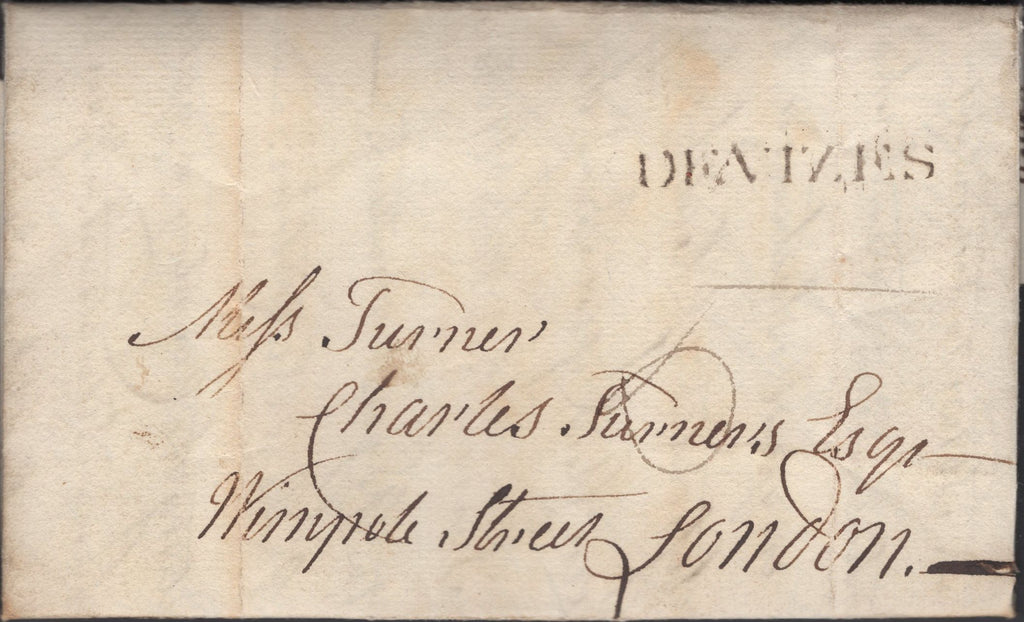 DEVIZES
Miss Turner
Charles Turners Esqr
Wimpole Street London.